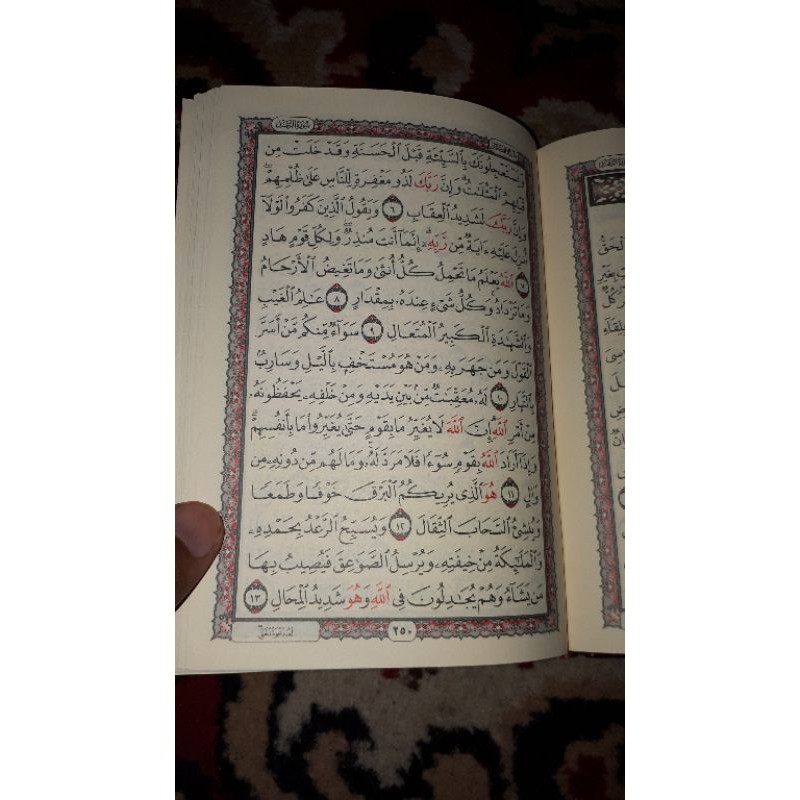 سورة الرعد
وَيَسْتَعْجِلُونَكَ بِٱلسَّيِّئَةِ قَبْلَ ٱلْحَسَنَةِ وَقَدْ خَلَتْ مِن
قَبْلِهِمُ ٱلْمَثُلَٰتُ ۗ وَإِنَّ رَبَّكَ لَذُو مَغْفِرَةٍ لِّلنَّاسِ عَلَىٰ ظُلْمِهِمْ ۖ
وَإِنَّ رَبَّكَ لَشَدِيدُ ٱلْعِقَابِ ٦ وَيَقُولُ ٱلَّذِينَ كَفَرُوا۟ لَوْلَآ
أُنزِلَ عَلَيْهِ ءَايَةٌ مِّن رَّبِّهِۦٓ ۗ إِنَّمَآ أَنتَ مُنذِرٌ ۖ وَلِكُلِّ قَوْمٍ هَادٍ
٧ ٱللَّهُ يَعْلَمُ مَا تَحْمِلُ كُلُّ أُنثَىٰ وَمَا تَغِيضُ ٱلْأَرْحَامُ
وَمَا تَزْدَادُ ۖ وَكُلُّ شَىْءٍ عِندَهُۥ بِمِقْدَارٍ ٨ عَٰلِمُ ٱلْغَيْبِ
وَٱلشَّهَٰدَةِ ٱلْكَبِيرُ ٱلْمُتَعَالِ ٩ سَوَآءٌ مِّنكُم مَّنْ أَسَرَّ
ٱلْقَوْلَ وَمَن جَهَرَ بِهِۦ وَمَنْ هُوَ مُسْتَخْفٍۭ بِٱلَّيْلِ وَسَارِبٌۢ
بِٱلنَّهَارِ ١٠ لَهُۥ مُعَقِّبَٰتٌ مِّنۢ بَيْنِ يَدَيْهِ وَمِنْ خَلْفِهِۦ يَحْفَظُونَهُۥ
مِنْ أَمْرِ ٱللَّهِ ۗ إِنَّ ٱللَّهَ لَا يُغَيِّرُ مَا بِقَوْمٍ حَتَّىٰ يُغَيِّرُوا۟ مَا بِأَنفُسِهِمْ ۗ
وَإِذَآ أَرَادَ ٱللَّهُ بِقَوْمٍ سُوٓءًا فَلَا مَرَدَّ لَهُۥ ۚ وَمَا لَهُم مِّن دُونِهِۦ مِن
وَالٍ ١١ هُوَ ٱلَّذِى يُرِيكُمُ ٱلْبَرْقَ خَوْفًا وَطَمَعًا
وَيُنشِئُ ٱلسَّحَابَ ٱلثِّقَالَ ١٢ وَيُسَبِّحُ ٱلرَّعْدُ بِحَمْدِهِۦ
وَٱلْمَلَٰٓئِكَةُ مِنْ خِيفَتِهِۦ وَيُرْسِلُ ٱلصَّوَٰعِقَ فَيُصِيبُ بِهَا
مَن يَشَآءُ وَهُمْ يُجَٰدِلُونَ فِى ٱللَّهِ وَهُوَ شَدِيدُ ٱلْمِحَالِ ١٣
٢٥٠